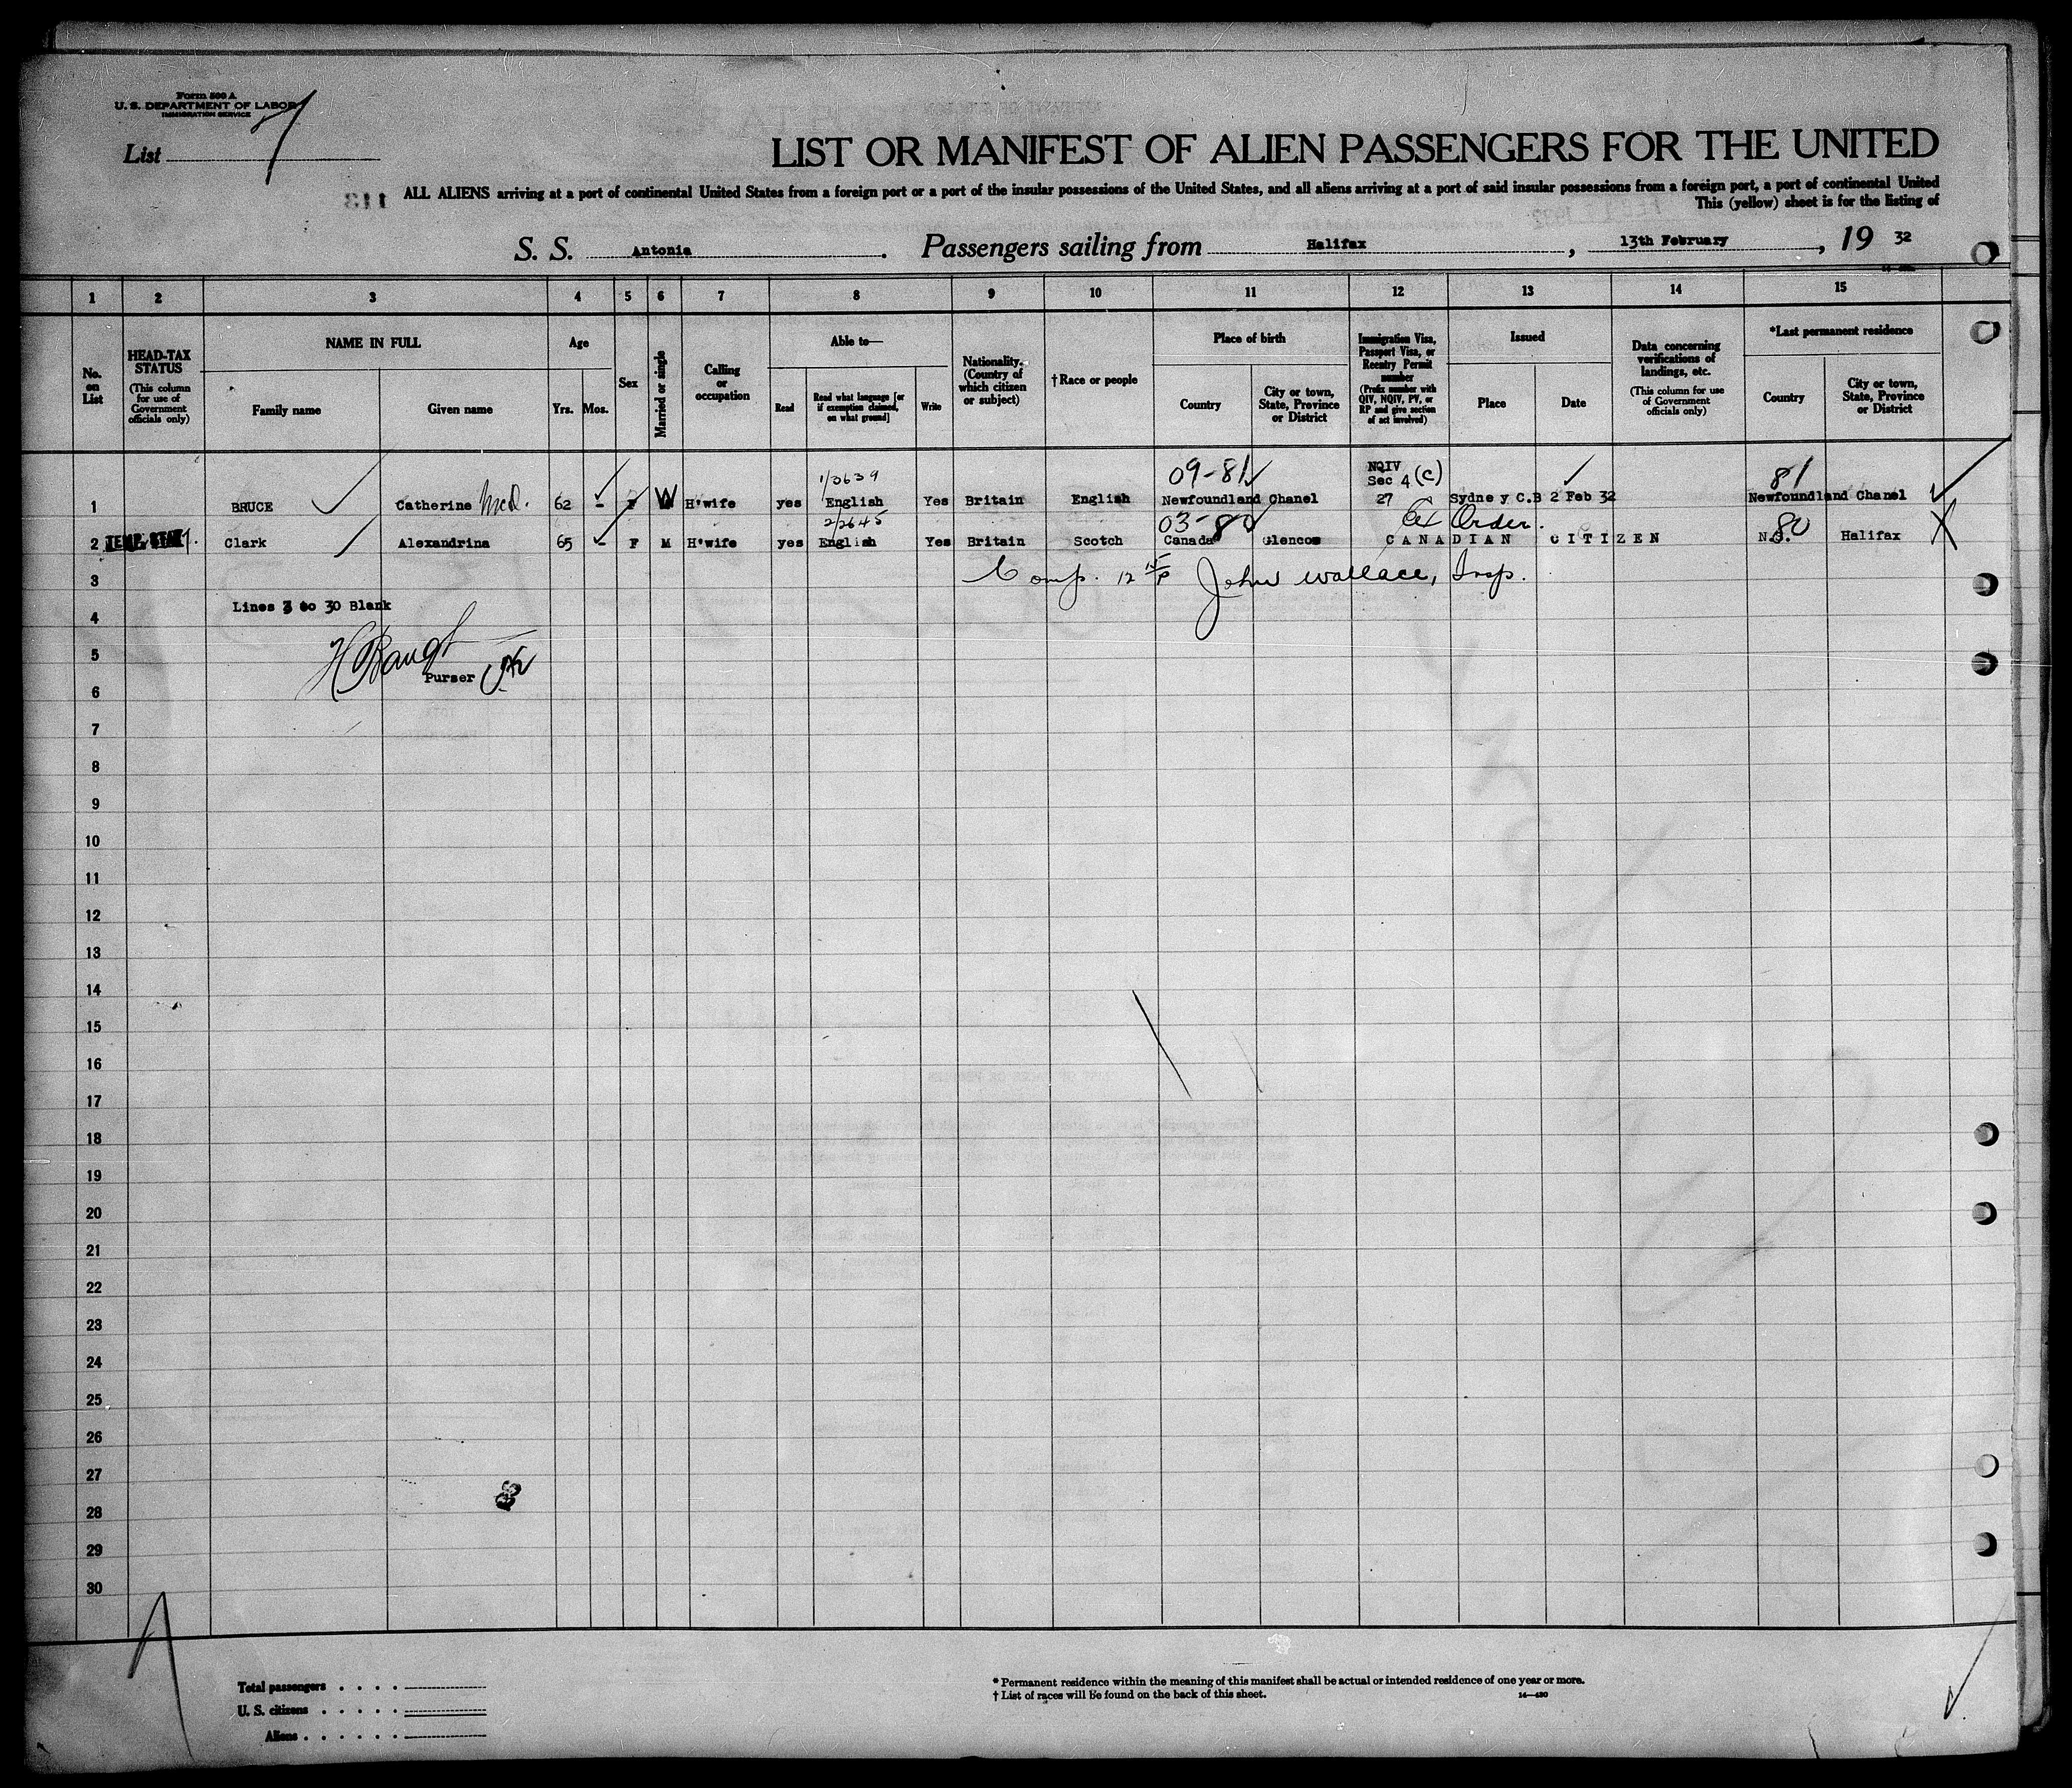 Form 500 A
U. S. DEPARTMENT OF LABOR
IMMIGRATION SERVICE
List 7
LIST OR MANIFEST OF ALIEN PASSENGERS FOR THE UNITED
113
ALL ALIENS arriving at a port of continental United States from a foreign port or a port of the insular possessions of the United States, and all aliens arriving at a port of said insular possessions from a foreign port, a port of continental United
This (yellow) sheet is for the listing of
S. S. Antonia. Passengers sailing from Halifax, 13th February, 19 32
1 2 3 4 5 6 7 8 9 10 11 12 13 14 15
No. on List
HEAD-TAX STATUS
(This column for use of Government officials only)
NAME IN FULL
Family name
Given name
Age
Yrs. Mos.
Sex
Married or single
Calling or occupation
Able to—
Read
Read what language [or if exemption claimed, on what ground]
Write
Nationality. (Country of which citizen or subject)
†Race or people
Place of birth
Country
City or town, State, Province or District
Immigration Visa, Passport Visa, or Reentry Permit number
(Prefix number with QIV, NQIV, PV, or RP and give section of act involved)
Issued
Place
Date
Data concerning verifications of landings, etc.
(This column for use of Government officials only)
*Last permanent residence
Country
City or town, State, Province or District
1/3639 09-81 NQIV Sec 4 (c) 81
1 BRUCE Catherine McD. 62 - F W H'wife yes English Yes Britain English Newfoundland Chanel 27 Sydney C.B 2 Feb 32 Newfoundland Chanel
2/2645 03-80 Order. 80
2 TEMP. Clark Alexandrina 65 - F M H'wife yes English Yes Britain Scotch Canada Glencoe CANADIAN CITIZEN N.S. Halifax X
3 Comp. 12 John Wallace, Insp.
Lines 3 to 30 Blank
4
5
Purser
6
7
8
9
10
11
12
13
14
15
16
17
18
19
20
21
22
23
24
25
26
27
28
29
30
Total passengers . . . .
U. S. citizens . . . . .
Aliens . . . . . .
* Permanent residence within the meaning of this manifest shall be actual or intended residence of one year or more.
† List of races will be found on the back of this sheet.
14—430